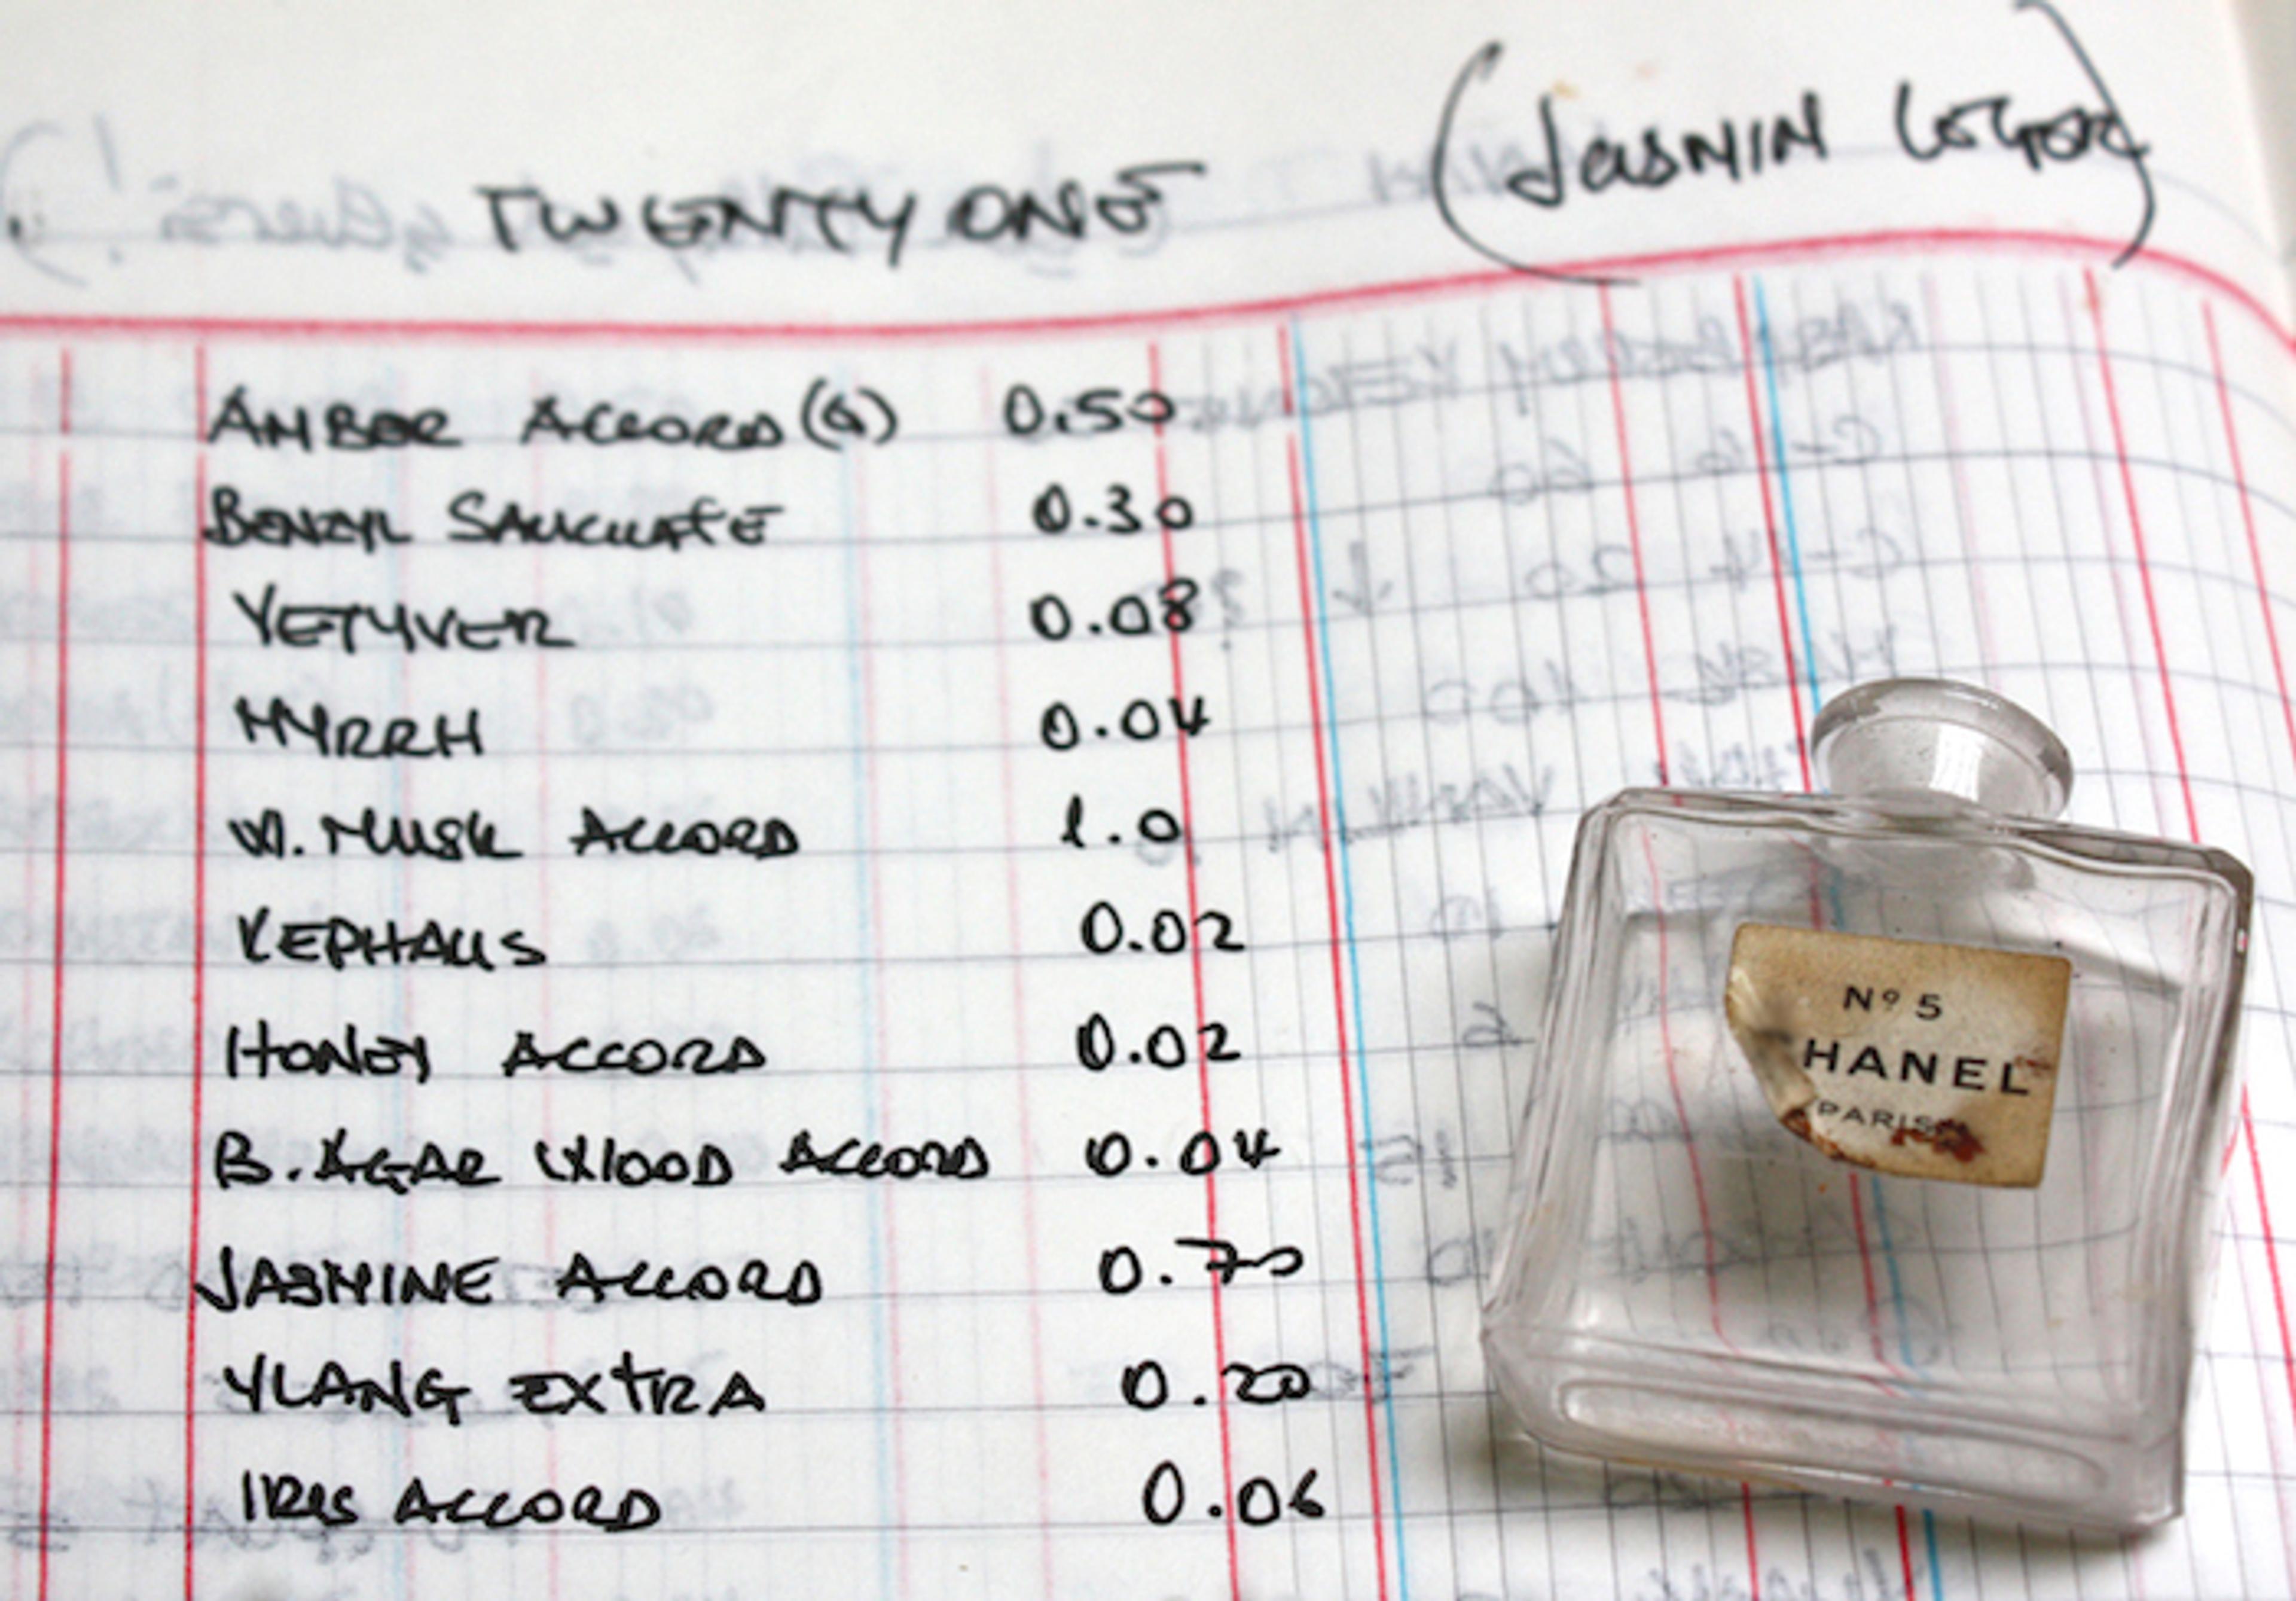 TWENTY ONE (JASMIN LEGER)
AMBER ACCORD (G) 0.50
BENZYL SALICYLATE 0.30
VETYVER 0.08
MYRRH 0.04
W. MUSK ACCORD 1.0
KEPHALIS 0.02
HONEY ACCORD 0.02
B. AGAR WOOD ACCORD 0.04
JASMINE ACCORD 0.70
YLANG EXTRA 0.20
IRIS ACCORD 0.06
Nº 5
HANEL
PARIS